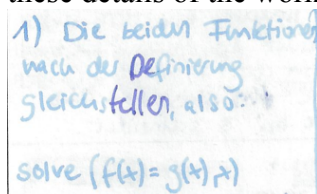 these details of the work
1) Die beiden Funktionen
nach der Definierung
gleichstellen, also:
solve (f(x) = g(x), x)